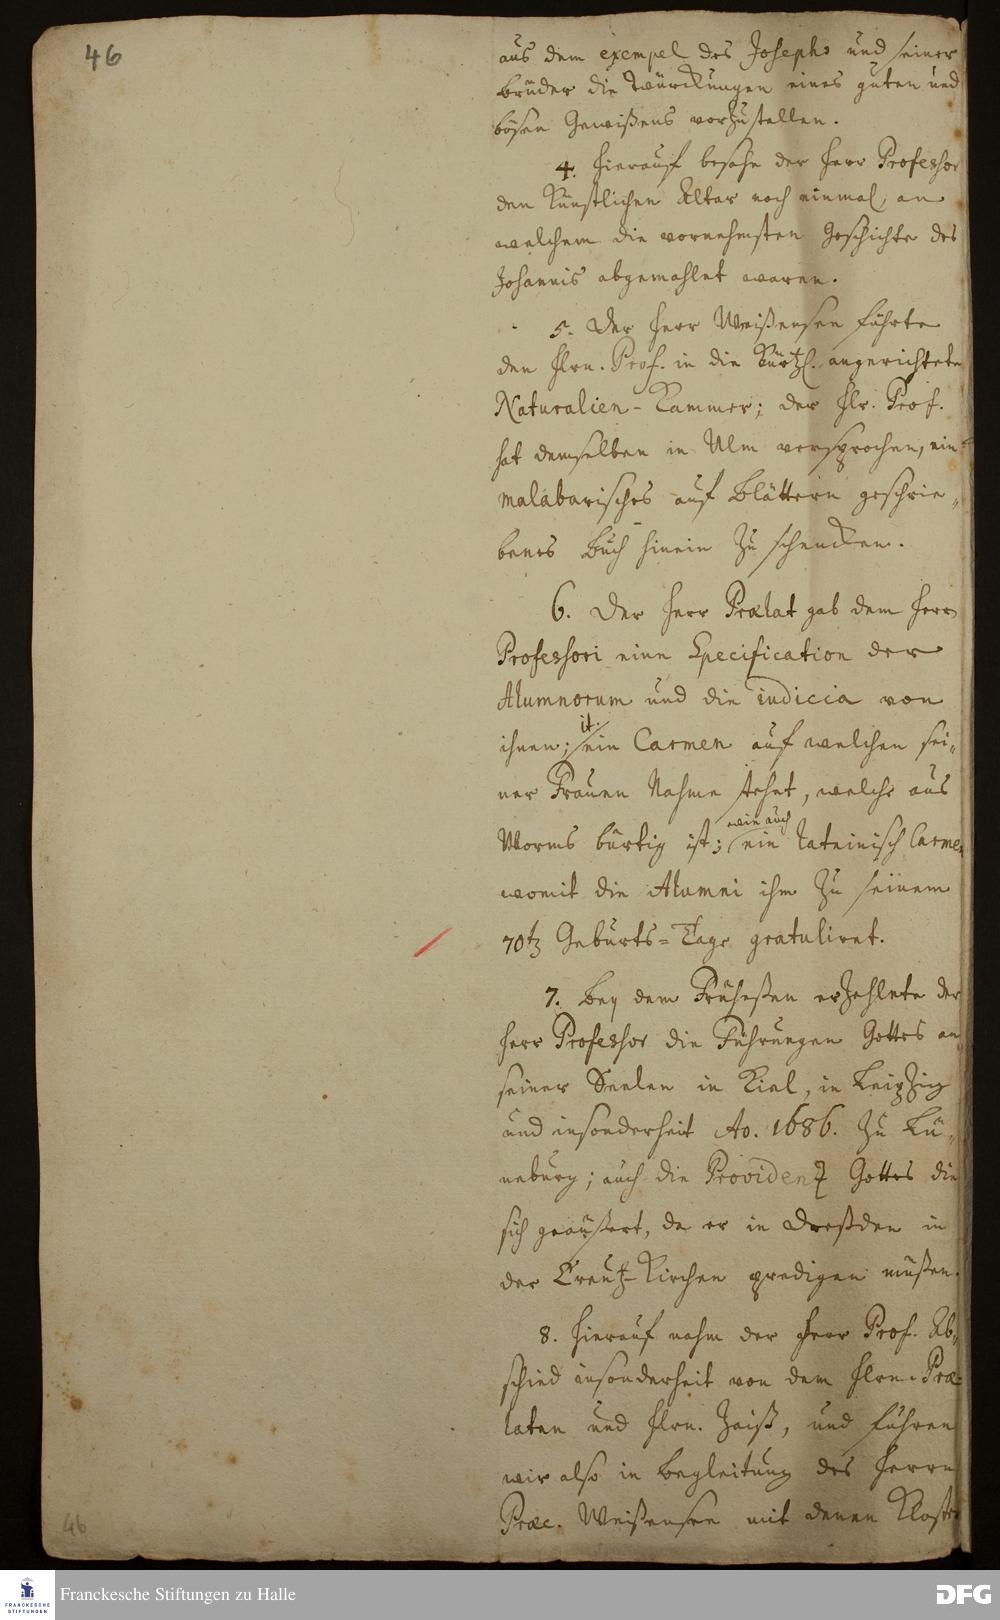 46
aus dem exempel des Josephs und seiner
Brüder die Würckungen eines guten und
bösen Gewißens vorzustellen.
4. Hierauf besahe der Herr Professor
den Künstlichen Altar noch einmal, an
welchem die vornehmsten Geschichte des
Johannis abgemahlet waren.
5. Der Herr Weißensee führte
den Hrn. Prof. in die Kürtzl. angerichtete
Naturalien-Kammer; der Hr. Prof.
hat demselben in Ulm versprochen, ein
malabarisches auf Blättern geschrie-
benes Buch hinein zu schencken.
6. Der Herr Prælat gab dem Herrn
Professori eine Specification der
Alumnorum und die iudicia von
ihnen; it. ein Carmen auf welchen sei-
ner Frauen Nahme stehet, welche aus
Worms bürtig ist; wie auch ein lateinisch Carmen
womit die Alumni ihm zu seinem
70tz Geburts-Tage gratuliret.
7. Bey dem Früheßen erzehlete der
Herr Professor die Führungen Gottes an
seiner Seelen in Kiel, in Leipzig
und insonderheit Ao. 1686. zu Lü-
neburg; auch die Providenz Gottes die
sich geäußert, da er in Dreßden in
der Creutz-Kirchen predigen müßen.
8. Hierauf nahm der Herr Prof. Ab-
schied insonderheit von dem Hrn. Præ-
laten und Hrn. Zeiß, und führen
wir also in Begleitung des Herrn
Præc. Weißensee mit denen Kloster
46
FRANCKESCHE
STIFTUNGEN
Franckesche Stiftungen zu Halle
DFG